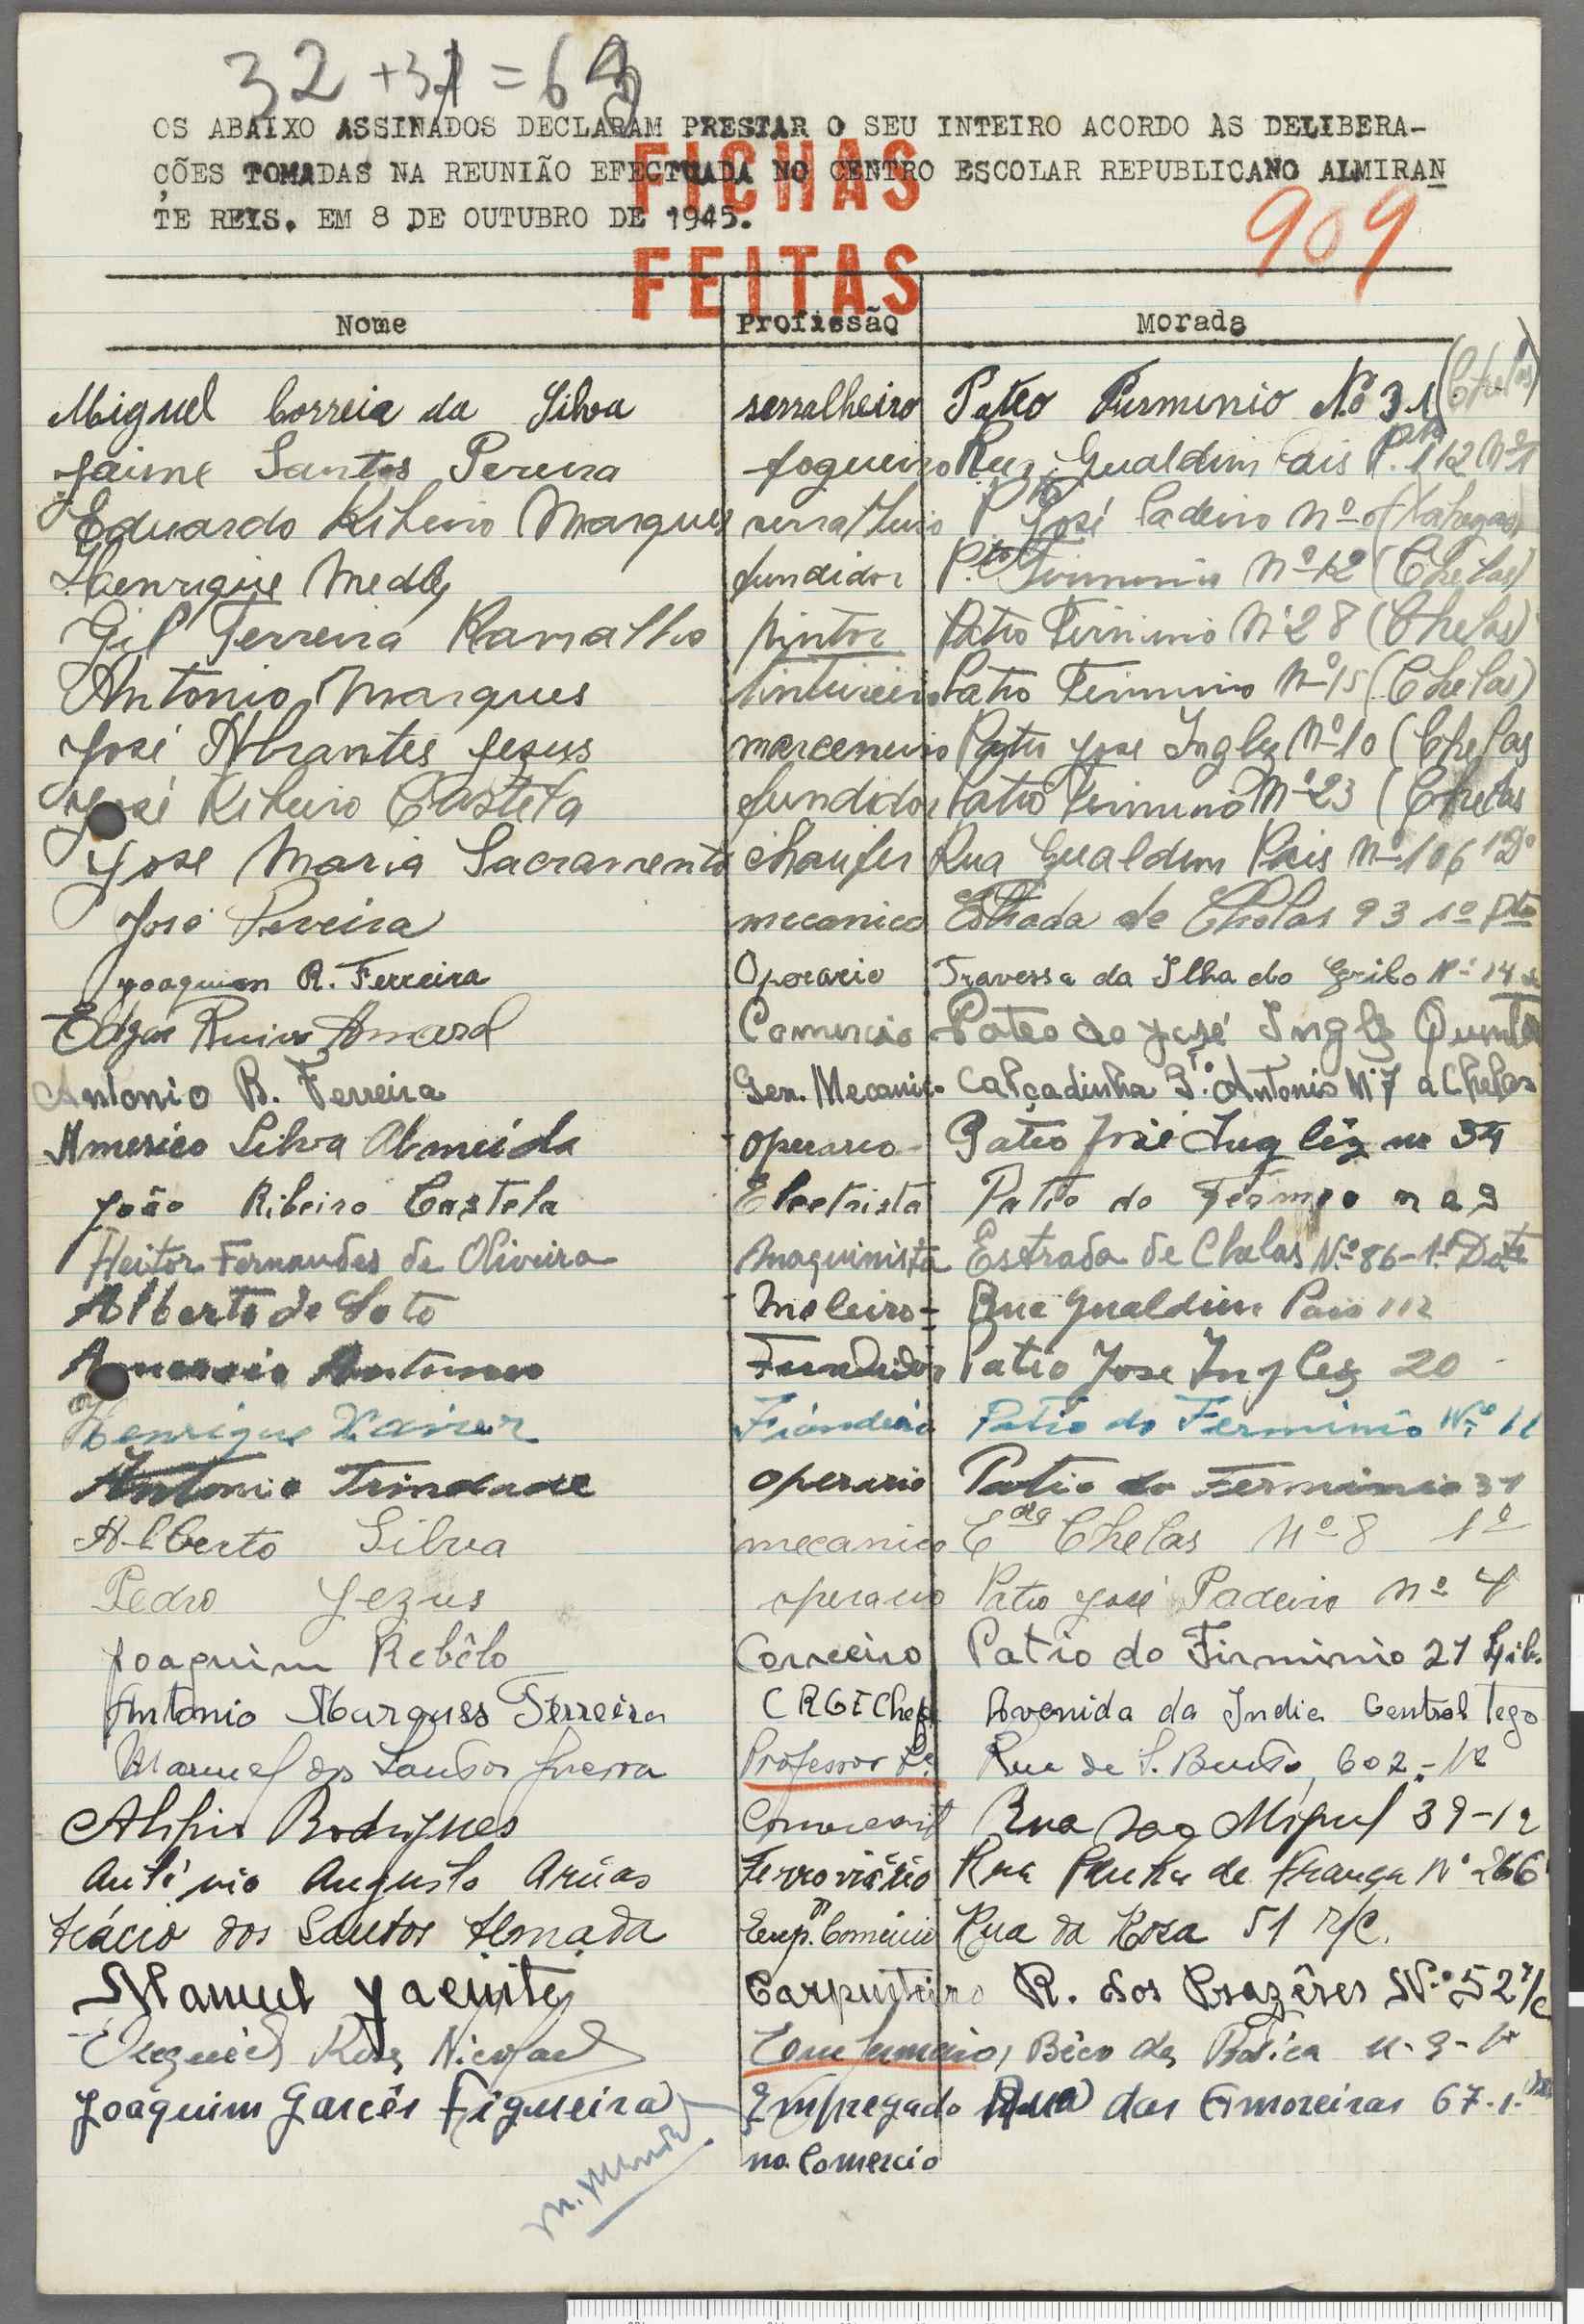 32 + 31 = 63
OS ABAIXO ASSINADOS DECLARAM PRESTAR O SEU INTEIRO ACORDO ÀS DELIBERA-
ÇÕES TOMADAS NA REUNIÃO EFECTUADA NO CENTRO ESCOLAR REPUBLICANO ALMIRAN
TE REIS. EM 8 DE OUTUBRO DE 1945.
FICHAS
FEITAS
909
Nome Profissão Morada
Miguel Correia da Silva serralheiro Pateo Firminio Nº 31 (Chelas)
Jaime Santos Pereira fogueiro Rua Gualdim Pais P. 112 Nº 1
Eduardo Ribeiro Marques serralheiro José Padeiro Nº
Henrique Medly fundidor Firminio Nº 12 (Chelas)
Gil Ferreira Ramalho pintor Patio Firminio Nº 28 (Chelas)
Antonio Marques tintureiro Patio Firminio Nº 15 (Chelas)
José Abrantes Jezus marceneiro Patio José Inglez Nº 10 (Chelas
José Ribeiro Castela fundidor Patio Firminio Nº 23 (Chelas
José Maria Sacramento chaufer Rua Gualdim Pais Nº 106 1º D
José Pereira mecanico Estrada de Chelas 93 1º
Joaquim R. Ferreira Operario Travessa da Ilha do Grilo Nº 14
Edgar Amaral Comercio Pateo do José Inglz Quinta
Antonio B. Ferreira Ser. Mecanico Calçadinha Stº Antonio Nº 7 a Chelas
Americo Silva Almeida operario Pateo José Inglêz nº 34
João Ribeiro Castela Electrista Patio do nº 9
Heitor Fernandes de Oliveira Maquinista Estrada de Chelas Nº 86-1º Dto
Alberto de Soto Moleiro Rua Gualdim Pais 112
Antunes Fundidor Patio Jose Inglez 20
Henrique Xavier Fiandeiro Patio do Ferminio Nº 11
Antonio Trindade operario Patio do Ferminio 31
Alberto Silva mecanico Eda Chelas Nº 8 1º
Pedro Jezus operario Patio José Padeiro Nº 4
Joaquim Rebêlo Correeiro Patio do Firminio 21
Antonio Marques Ferreira CRGE Chefe Avenida da India Central Tejo
Manuel dos Santos Guerra Professor Rua de S. Bento, 602-1º
Alipio Rodrigues Comerciante Rua Sao Miguel 39-1º
António Augusto Arúas Ferroviário Rua Penha de França Nº 266
Acácio dos Santos Almada Emp. Comércio Rua da Rosa 51 r/c.
Manuel Jacinto Carpinteiro R. dos Prazêres Nº 52 r/c
Ezequiel Nicolau Enfermeiro, Bêco da Bolica n. 9-1º
Joaquim Garcês Figueira Empregado Rua das Amoreiras 67-1º
no Comercio